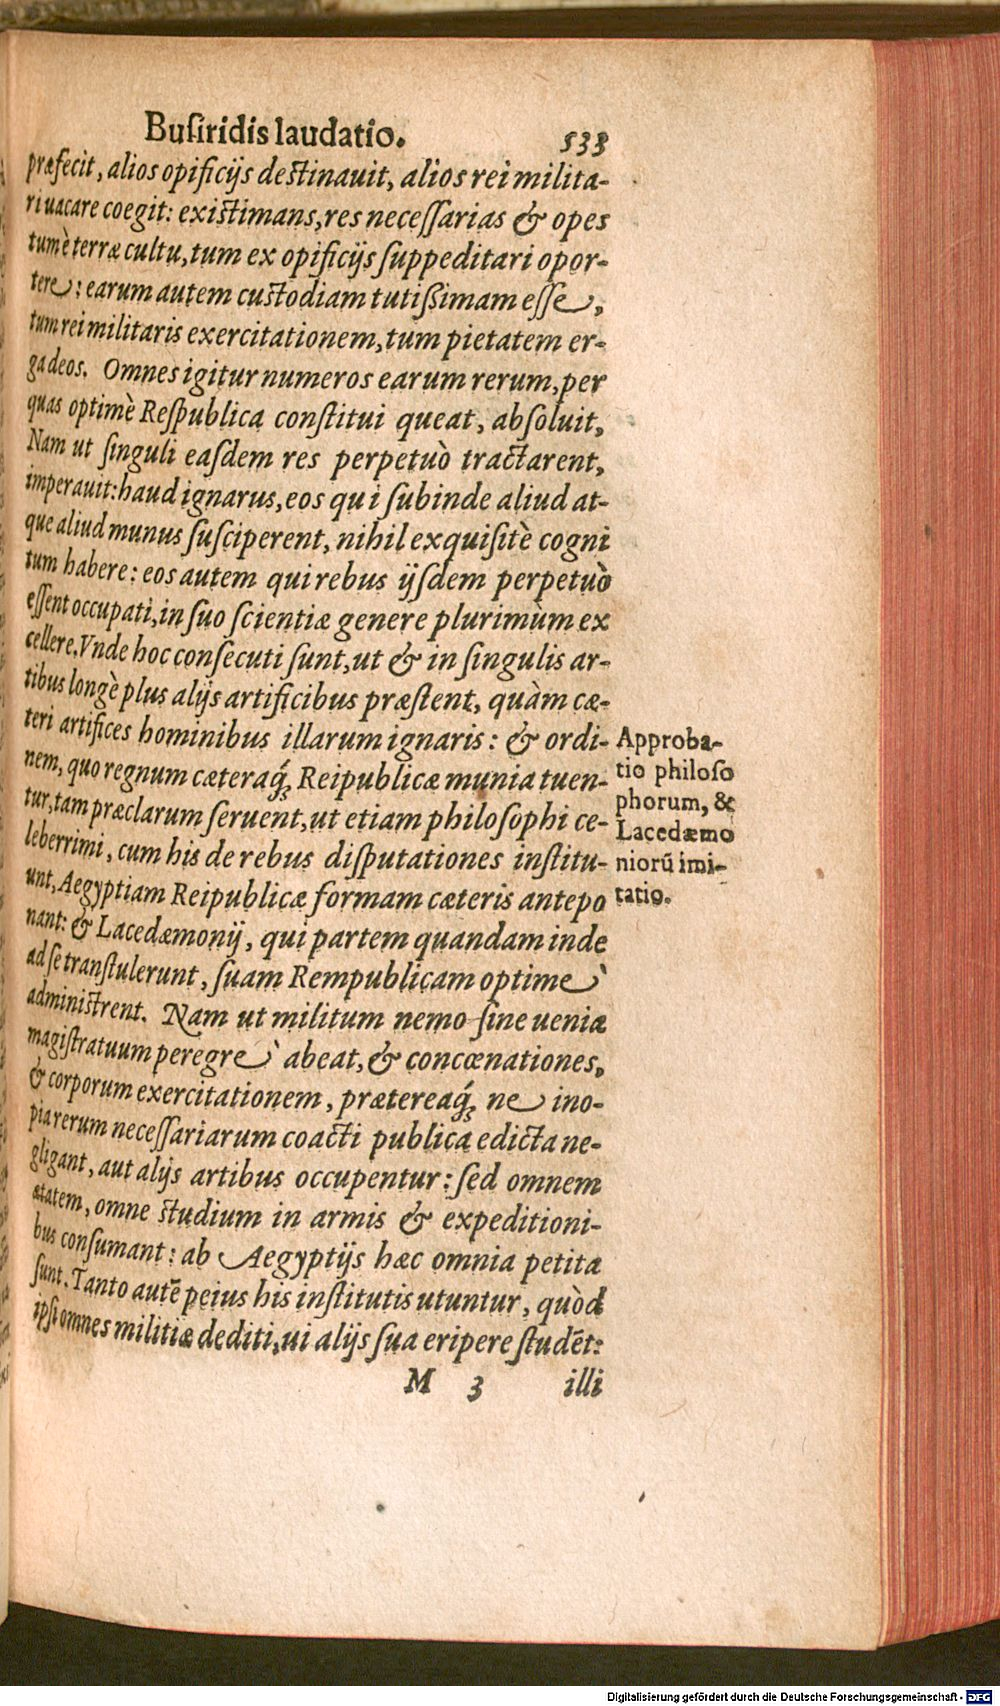 Buſiridis laudatio. 533
præfecit, alios opificijs deſtinauit, alios rei milita-
ri uacare coegit: exiſtimans, res neceſſarias & opes
tum è terræ cultu, tum ex opificijs ſuppeditari opor-
tere: earum autem cuſtodiam tutißimam eſſe,
tum rei militaris exercitationem, tum pietatem er-
ga deos. Omnes igitur numeros earum rerum, per
quas optimè Reſpublica conſtitui queat, abſoluit,
Nam ut ſinguli eaſdem res perpetuò tractarent,
imperauit: haud ignarus, eos qui ſubinde aliud at-
que aliud munus ſuſciperent, nihil exquiſitè cogni
tum habere: eos autem qui rebus ijſdem perpetuò
eſſent occupati, in ſuo ſcientiæ genere plurimùm ex
cellere. Vnde hoc conſecuti ſunt, ut & in ſingulis ar-
tibus longè plus alijs artificibus præſtent, quàm cæ-
teri artifices hominibus illarum ignaris: & ordi-
nem, quo regnum cæteraq́; Reipublicæ munia tuen-
tur, tam præclarum ſeruent, ut etiam philoſophi ce-
leberrimi, cum his de rebus diſputationes inſtitu-
unt, Aegyptiam Reipublicæ formam cæteris antepo
nant: & Lacedæmonij, qui partem quandam inde
ad ſe tranſtulerunt, ſuam Rempublicam optimè
adminiſtrent. Nam ut militum nemo ſine uenia
magiſtratuum peregrè abeat, & concœnationes,
& corporum exercitationem, prætereaq́; ne ino-
pia rerum neceſſariarum coacti publica edicta ne-
gligant, aut alijs artibus occupentur: ſed omnem
ætatem, omne ſtudium in armis & expeditioni-
bus conſumant: ab Aegyptijs hæc omnia petita
ſunt. Tanto autē peius his inſtitutis utuntur, quòd
ipſi omnes militiæ dediti, ui alijs ſua eripere ſtudēt:
M 3 illi
Approba-
tio philoſo
phorum, &
Lacedæmo
niorū imi-
tatio.
Digitalisierung gefördert durch die Deutsche Forschungsgemeinschaft - DFG